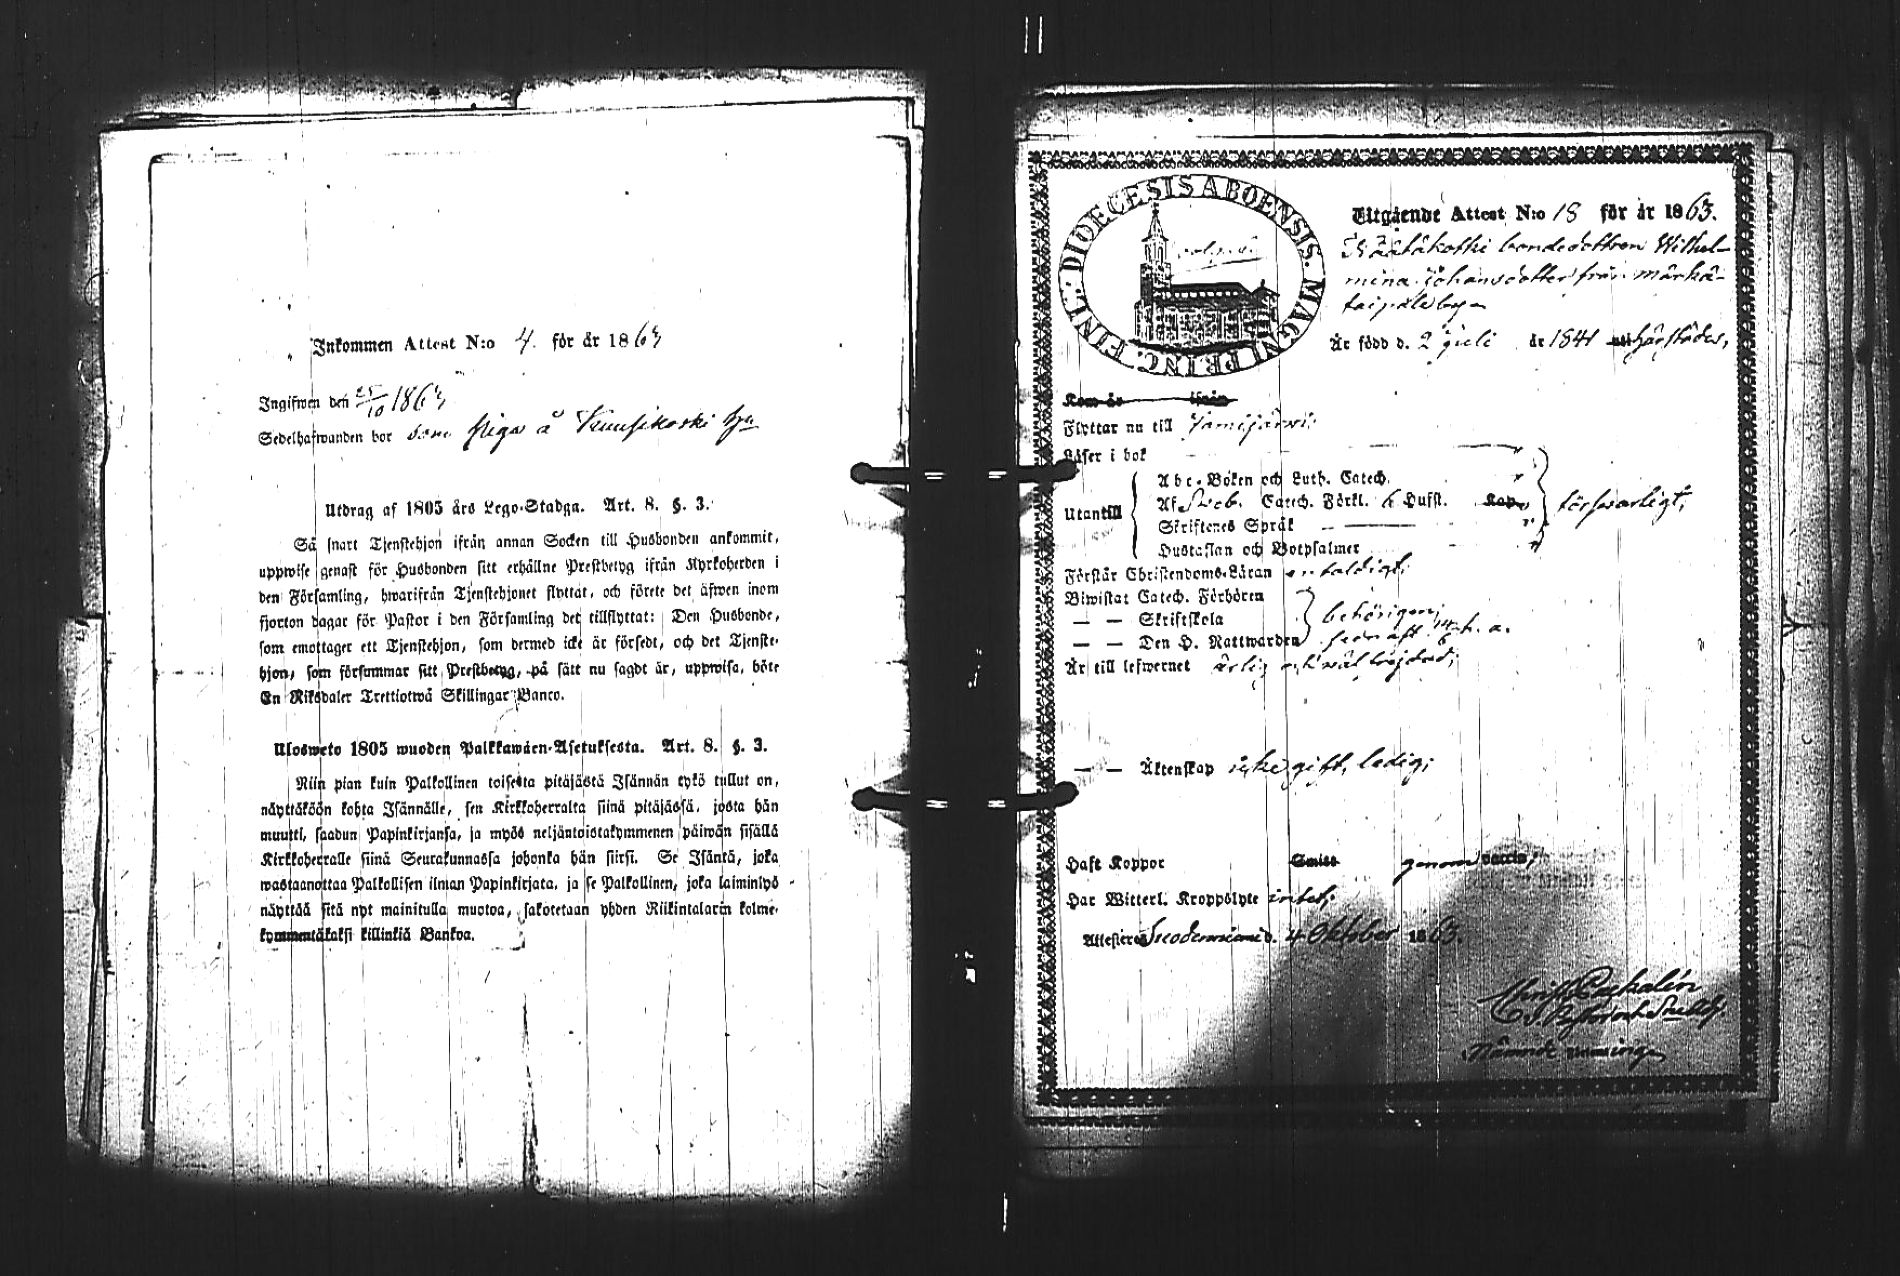 Inkommen Attest N:o 4. för år 1863
Ingifwen den 25/10 1863
Sedelhafwanden bor som piga å Kuusikoski by
Utdrag af 1805 års Lego-Stadga. Art. 8. §. 3.
Så snart Tjenstehjon ifrån annan Socken till Husbonden ankommit,
uppwise genast för Husbonden sitt erhållne Prestbetyg ifrån Kyrkoherden i
den Församling, hwarifrån Tjenstehjonet flyttat, och förete det äfwen inom
fjorton dagar för Pastor i den Församling det tillflyttat: Den Husbonde,
som emottager ett Tjenstehjon, som dermed icke är försedt, och det Tjenste-
hjon, som försummar sitt Prestbetyg, på sätt nu sagdt är, uppwisa, böte
En Riksdaler Trettiotwå Skillingar Banco.
Ulosweto 1805 wuoden Palkkawäen-Asetuksesta. Art. 8. §. 3.
Niin pian kuin Palkollinen toisesta pitäjästä Isännän tykö tullut on,
näyttäköön kohta Isännälle, sen Kirkkoherralta siinä pitäjässä, josta hän
muutti, saadun Papinkirjansa, ja myös neljäntoistakymmenen päiwän sisällä
Kirkkoherralle siinä Seurakunnassa johonka hän siirsi. Se Isäntä, joka
wastaanottaa Palkollisen ilman Papinkirjata, ja se Palkollinen, joka laiminlyö
näyttää sitä nyt mainitulla muotoa, sakotetaan yhden Riikintalarin kolme-
kymmentäkaksi killinkiä Bankoa.
DIOECESIS ABOENSIS. MAGNI PRINC. FINL.
Utgående Attest N:o 18 för år 1863.
bondedottren Wilhel-
mina Johansdotter från Märkä-
taipale by
Är född d. 2 Juli år 1841 härstädes,
Kom år ifrån
Flyttar nu till Jämijärvi;
Läser i bok
Abc-Boken och Luth. Catech.
Utantill
Af Sveb. Catech. Förkl. 6 Hufst. Kap. försvarligt;
Skriftenes Språk
Hustaflan och Botpsalmer
Förstår Christendoms-Läran enfaldigt;
Biwistat Catech. Förhören
— — Skriftskola behörigen;
— — Den H. Nattwarden
Är till lefwernet ärlig och
— — Äktenskap icke gift, ledig;
Haft Koppor Smitt genom vaccin;
Har Witterl. Kroppslyte intet;
Attesteras d. 4 Oktober 1863.